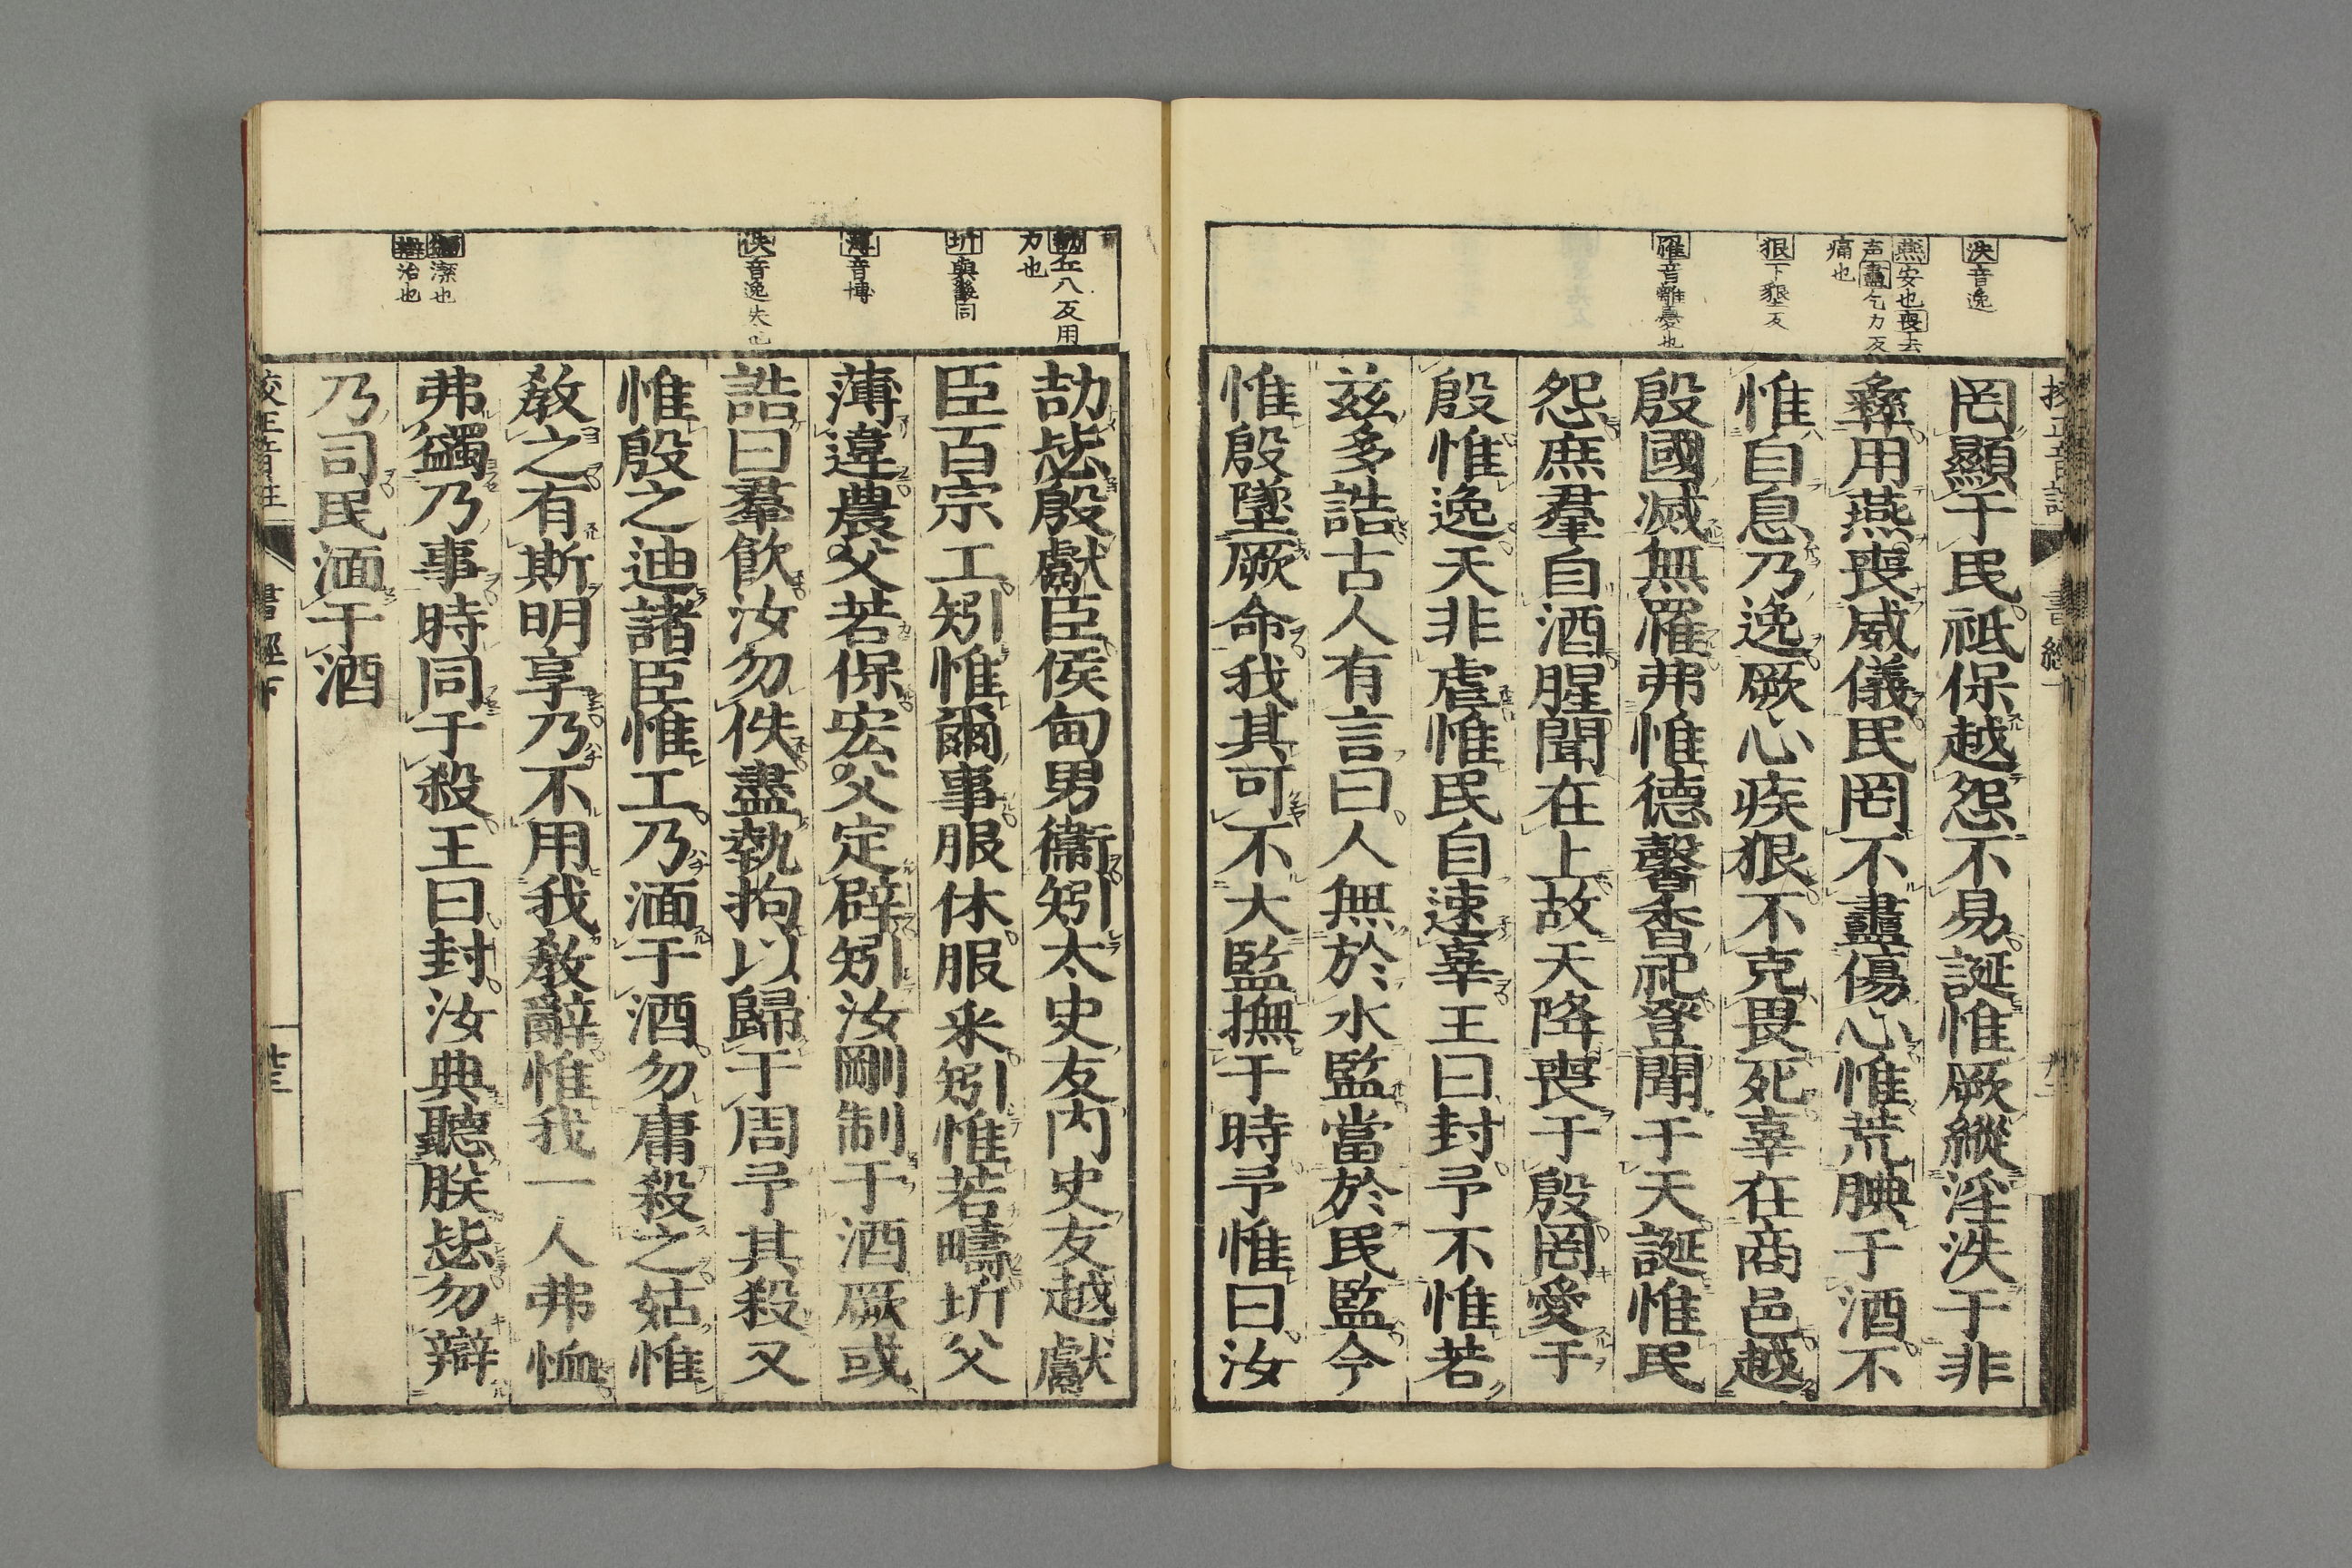 泆音逸
燕安也喪去
声衋乞力反
痛也
狠下墾反
罹音離憂也
罔顯于民祗保越怨不易誕惟厥縱淫泆于非
彝用燕喪威儀民罔不衋傷心惟荒腆于酒不
惟自息乃逸厥心疾狠不克畏死辜在商邑越
殷國滅無罹弗惟德馨香祀登聞于天誕惟民
怨庶羣自酒腥聞在上故天降喪于殷罔愛于
殷惟逸天非虐惟民自速辜王曰封予不惟若
茲多誥古人有言曰人無於水監當於民監今
惟殷墜厥命我其可不大監撫于時予惟曰汝
劼丘八反用
力也
圻與畿同
薄音博
佚音逸失也
蠲潔也
辯治也
劼毖殷獻臣侯甸男衞矧太史友内史友越獻
臣百宗工矧惟爾事服休服采矧惟若疇圻父
薄違農父若保宏父定辟矧汝剛制于酒厥或
誥曰羣飮汝勿佚盡執拘以歸于周予其殺又
惟殷之迪諸臣惟工乃湎于酒勿庸殺之姑惟
敎之有斯明享乃不用我敎辭惟我一人弗恤
弗蠲乃事時同于殺王曰封汝典聽朕毖勿辯
乃司民湎于酒
書經下